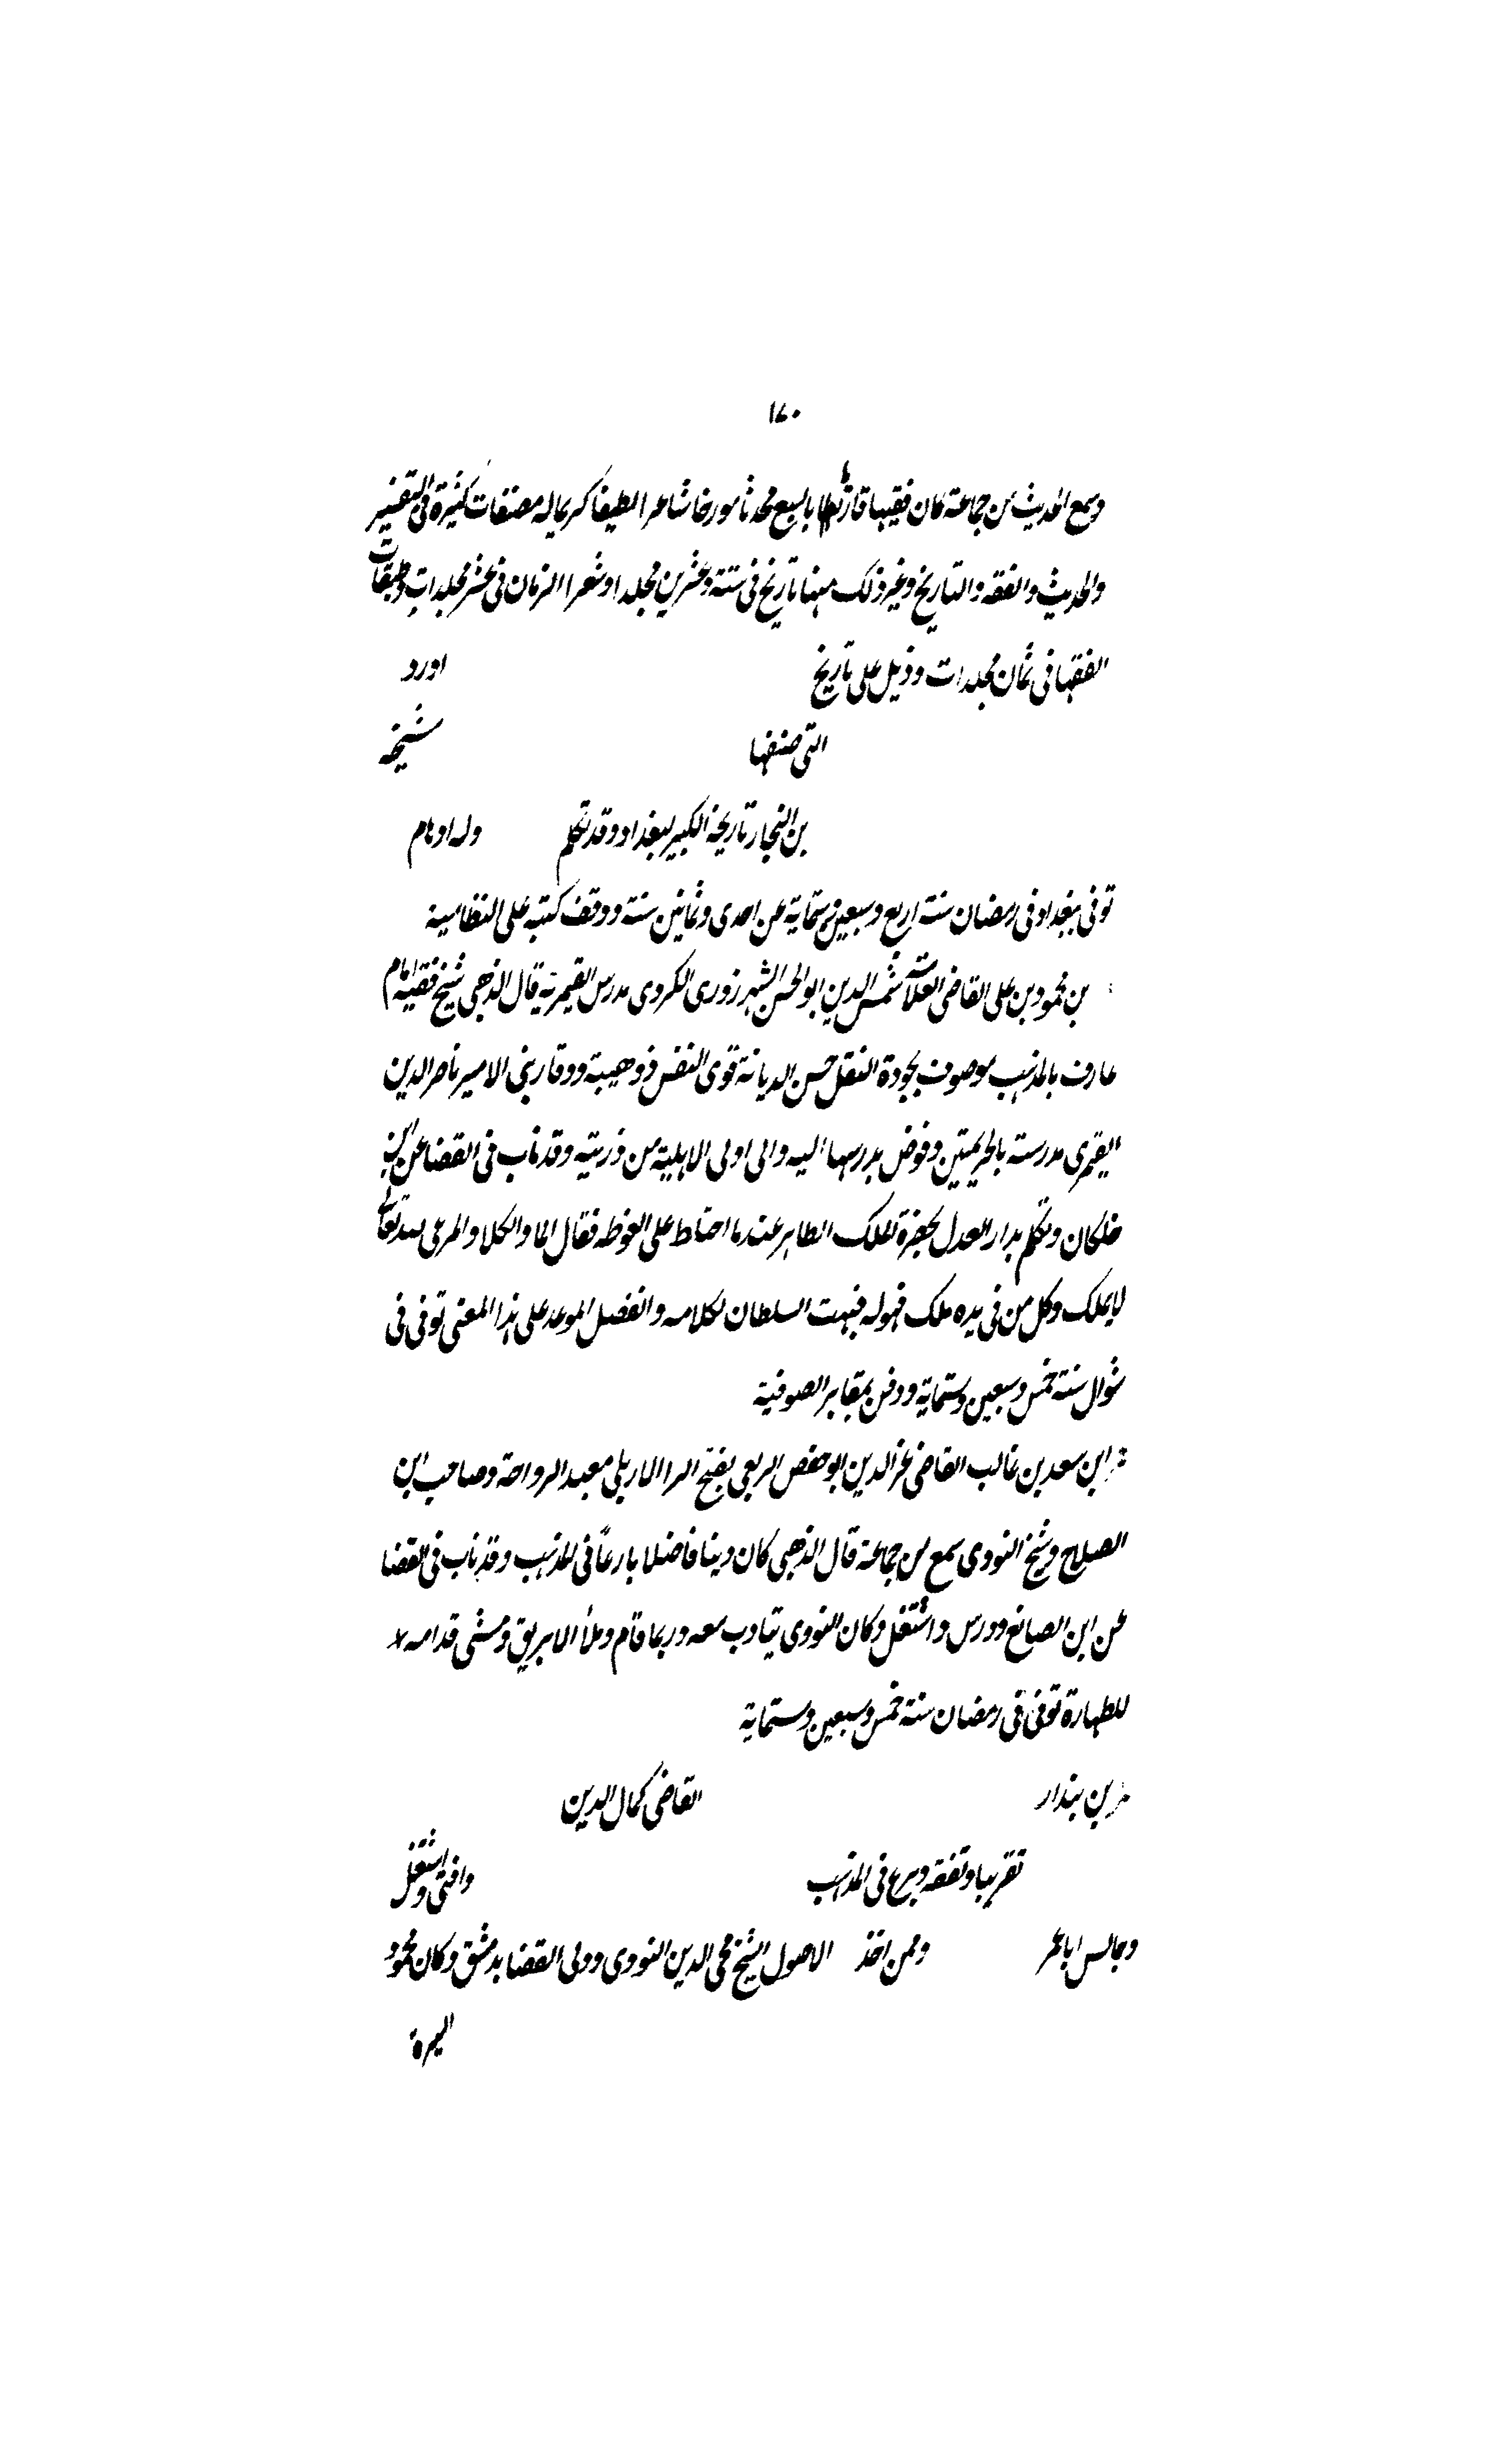 ١٧٠
وسمع الحديث من جماعة كان فقيها قارئا بالسبع محدثا مورخا شاعرا لطيفا كريما له مصنفات كثيرة فى التفسير
والحديث والفقه والتاريخ وغير ذلك منها تاريخ فى ستة وعشرين مجلدا وشعرا الزمان فى عشر مجلدات وطبقات
الفقها فى ثمان مجلدات وذيل على تاريخ اورد
التى صنفها شيخه
بن النجار تاريخه الكبير لبغداد وقد تكلم وله اوهام
توفى ببغداد فى رمضان سنة اربع وسبعين وستماية عن احدى وثمانين سنة ووقف كتبه على النظامية
بن محمود بن على القاضى العلامة شمس الدين ابو الحسن الشهرزورى الكردى مدرس القيمرية قال الذهبى شيخ فقيه امام
عارف بالمذهب موصوف بجودة النقل حسن الديانة قوى النفس ذو هيبة ووقار بنى الامير ناصر الدين
القيمرى مدرسته بالحريميين وفوض تدريسها اليه والى اولى الاهلية من ذريته وقد ناب فى القضا عن ابن
خلكان وتكلم بدار العدل بحضرة الملك الظاهر عندما احتاط على الغوطه فقال الما والكلا والمرعى لله تعالى
لا يملك وكل من فى يده ملك فهو له فبهت السلطان لكلامه وانفصل الموعد على هذا المعنى توفى فى
شوال سنة خمس وسبعين وستماية ودفن بمقابر الصوفية
ابن سعد بن غالب القاضى عز الدين ابو حفص الربعى بفتح الرا الاربلى معيد الرواحة وصاحب ابن
الصلاح وشيخ النووى سمع من جماعة قال الذهبى كان دينا فاضلا بارعاً فى المذهب وقد ناب فى القضا
عن ابن الصائغ ودرس واشتغل وكان النووى يتادب معه وربما قام وملأ الابريق ومشى قدامه
للطهارة توفى فى رمضان سنة خمس وسبعين وستماية
بن بندار القاضى كمال الدين
تقريبا وتفقه وبرع فى المذهب وافتى واشتغل
وجالس ابا عمر وممن اخذ الاصول الشيخ محى الدين النووى وولى القضا بدمشق وكان محمود
السيرة